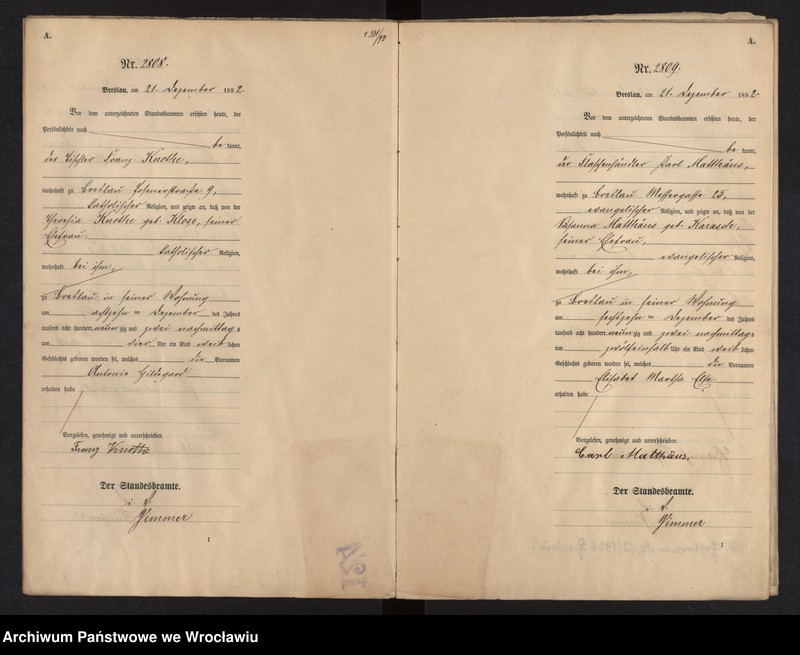 A.
Nr. 2808.
Breslau, am 21. Dezember 1892
Vor dem unterzeichneten Standesbeamten erschien heute, der
Persönlichkeit nach
be kannt,
der Tischler Franz Knothe,
wohnhaft zu Breslau Posenerstraße 9,
katholischer Religion, und zeigte an, daß von der
Theresia Knothe geb. Klose, seiner
Ehefrau,
katholischer Religion,
wohnhaft bei ihm,
zu Breslau in seiner Wohnung
am achtzehn = Dezember des Jahres
tausend acht hundert neun zig und zwei nachmittags
um vier Uhr ein Kind weib lichen
Geschlechts geboren worden sei, welches die Vornamen
Antonie Hildegard
erhalten habe.
Vorgelesen, genehmigt und unterschrieben.
Franz Knothe
Der Standesbeamte.
i. V.
Zimmer
1
A.
Nr. 2809.
Breslau, am 21. Dezember 1892
Vor dem unterzeichneten Standesbeamten erschien heute, der
Persönlichkeit nach
be kannt,
der Flaschenhändler Karl Matthäus,
wohnhaft zu Breslau Messergasse 25,
evangelischer Religion, und zeigte an, daß von der
Susanna Matthäus geb.
seiner Ehefrau,
evangelischer Religion,
wohnhaft bei ihm,
zu Breslau in seiner Wohnung
am sechszehn = Dezember des Jahres
tausend acht hundert neun zig und zwei nachmittags
um zwölfeinhalb Uhr ein Kind weib lichen
Geschlechts geboren worden sei, welches die Vornamen
Elisabet Martha Else
erhalten habe.
Vorgelesen, genehmigt und unterschrieben.
Carl Matthäus.
Der Standesbeamte.
i. V.
Zimmer
1
Archiwum Państwowe we Wrocławiu